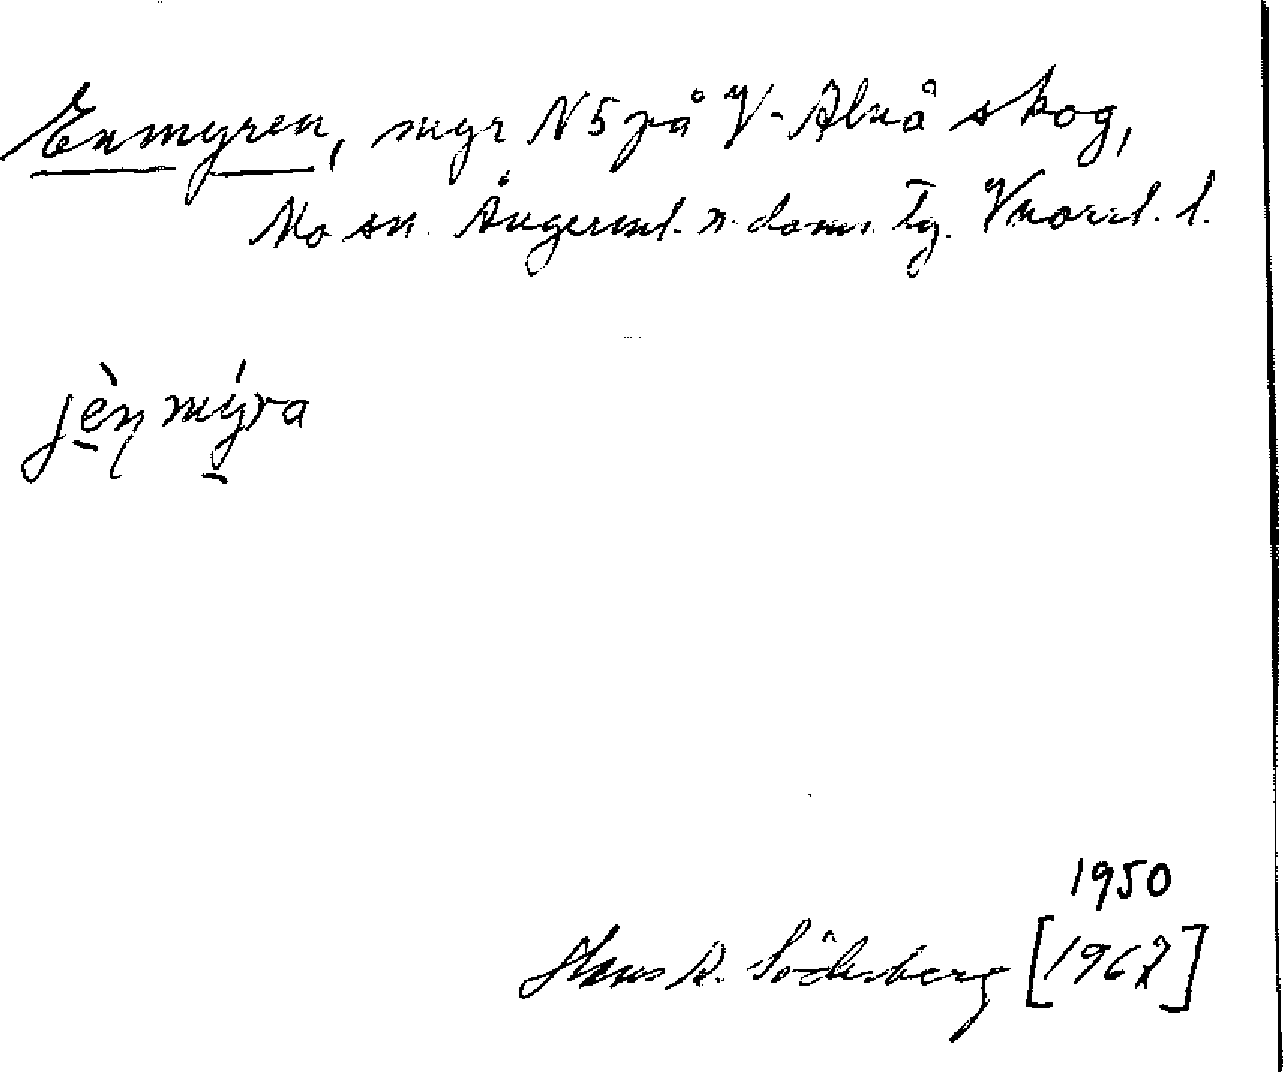 Enmyren, myr N5 på V-Alnå skog,
Mo sn. Ångerml. n. doms. Tg. Vnorrl. l.
jèn mýra
1950
Hans R. Söderberg [1967]